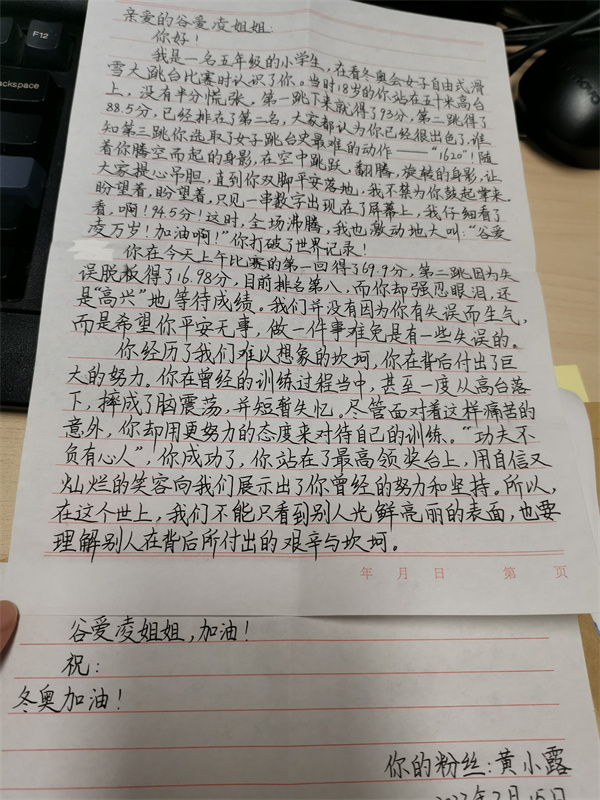 F12
Backspace
亲爱的谷爱凌姐姐:
你好!
我是一名五年级的小学生,在看冬奥会女子自由式滑
雪大跳台比赛时认识了你。当时18岁的你站在五十米高台
上,没有半分慌张,第一跳下来就得了93分,第二跳得了
88.5分,已经排在了第二名,大家都认为你已经很出色了,谁
知第三跳你选取了女子跳台史最难的动作——“1620”!随
着你腾空而起的身影,在空中跳跃,翻腾,旋转的身影,让
大家提心吊胆,直到你双脚平安落地,我不禁为你鼓起掌来。
盼望着,盼望着,只见一串数字出现在了屏幕上,我仔细看了
看,啊!94.5分!这时,全场沸腾,我也激动地大叫:“谷爱
凌万岁!加油啊!”你打破了世界记录!
你在今天上午比赛的第一回得了69.9分,第二跳因为失
误脱板得了16.98分,目前排名第八,而你却强忍眼泪,还
是“高兴”地等待成绩。我们并没有因为你有失误而生气,
而是希望你平安无事,做一件事难免是有一些失误的。
你经历了我们难以想象的坎坷,你在背后付出了巨
大的努力。你在曾经的训练过程当中,甚至一度从高台落
下,摔成了脑震荡,并短暂失忆。尽管面对着这样痛苦的
意外,你却用更努力的态度来对待自己的训练。“功夫不
负有心人”,你成功了,你站在了最高领奖台上,用自信又
灿烂的笑容向我们展示出了你曾经的努力和坚持。所以,
在这个世上,我们不能只看到别人光鲜亮丽的表面,也要
理解别人在背后所付出的艰辛与坎坷。
年 月 日 第 页
谷爱凌姐姐,加油!
祝:
冬奥加油!
你的粉丝:黄小露
2022年2月15日